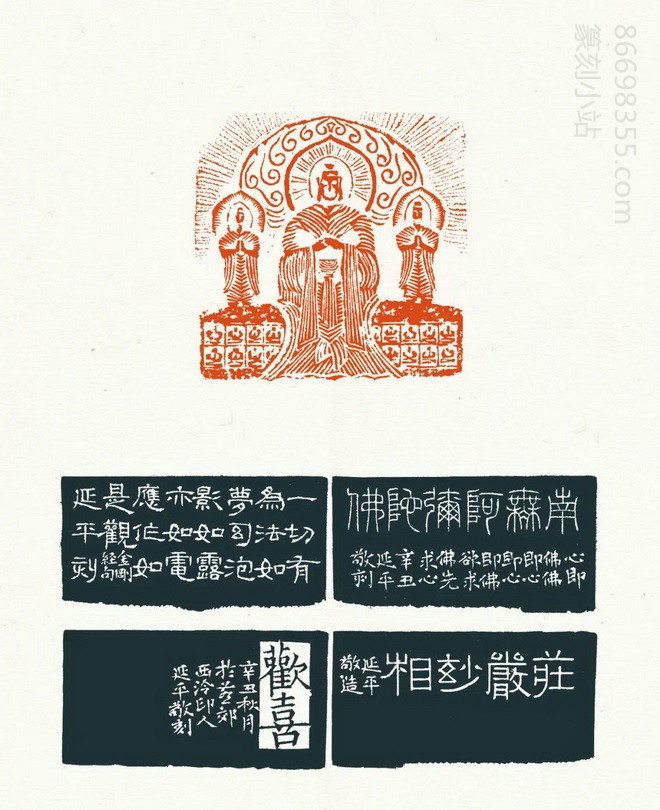 86698355.com
篆刻小站
南無阿彌陀佛
心即
佛佛
即心
即心
即佛
欲求
佛先
求心
辛丑
延平
敬刻
一切有
為法如
夢幻泡
影如露
亦如電
應作如
是觀金剛經句
延平刻
莊嚴妙相
延平
敬造
歡喜
辛丑秋月
於郊
西泠印人
延平敬刻